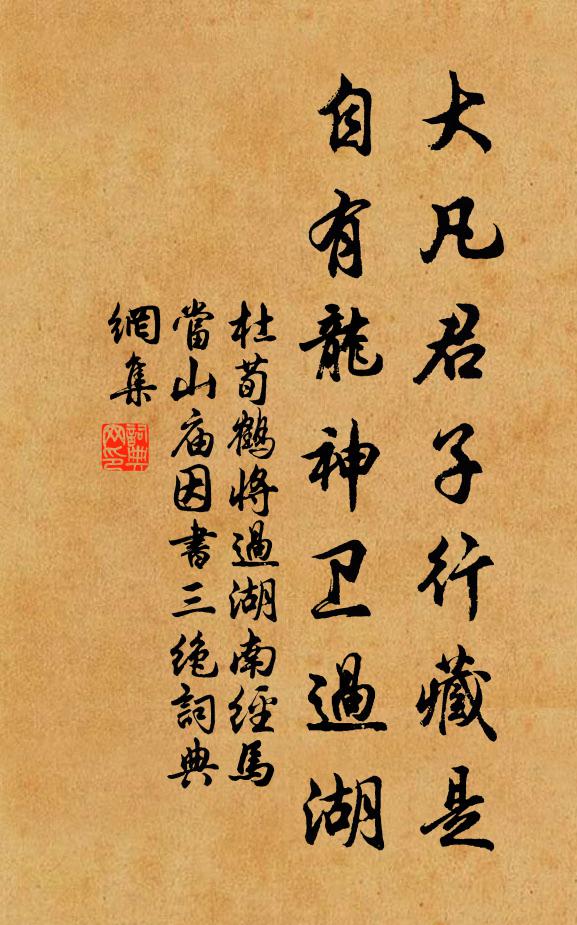 大凡君子行藏是
自有龍神卫過湖
杜荀鶴將過湖南經馬
當山庙因書三绝詞典
網集
詞典
网印